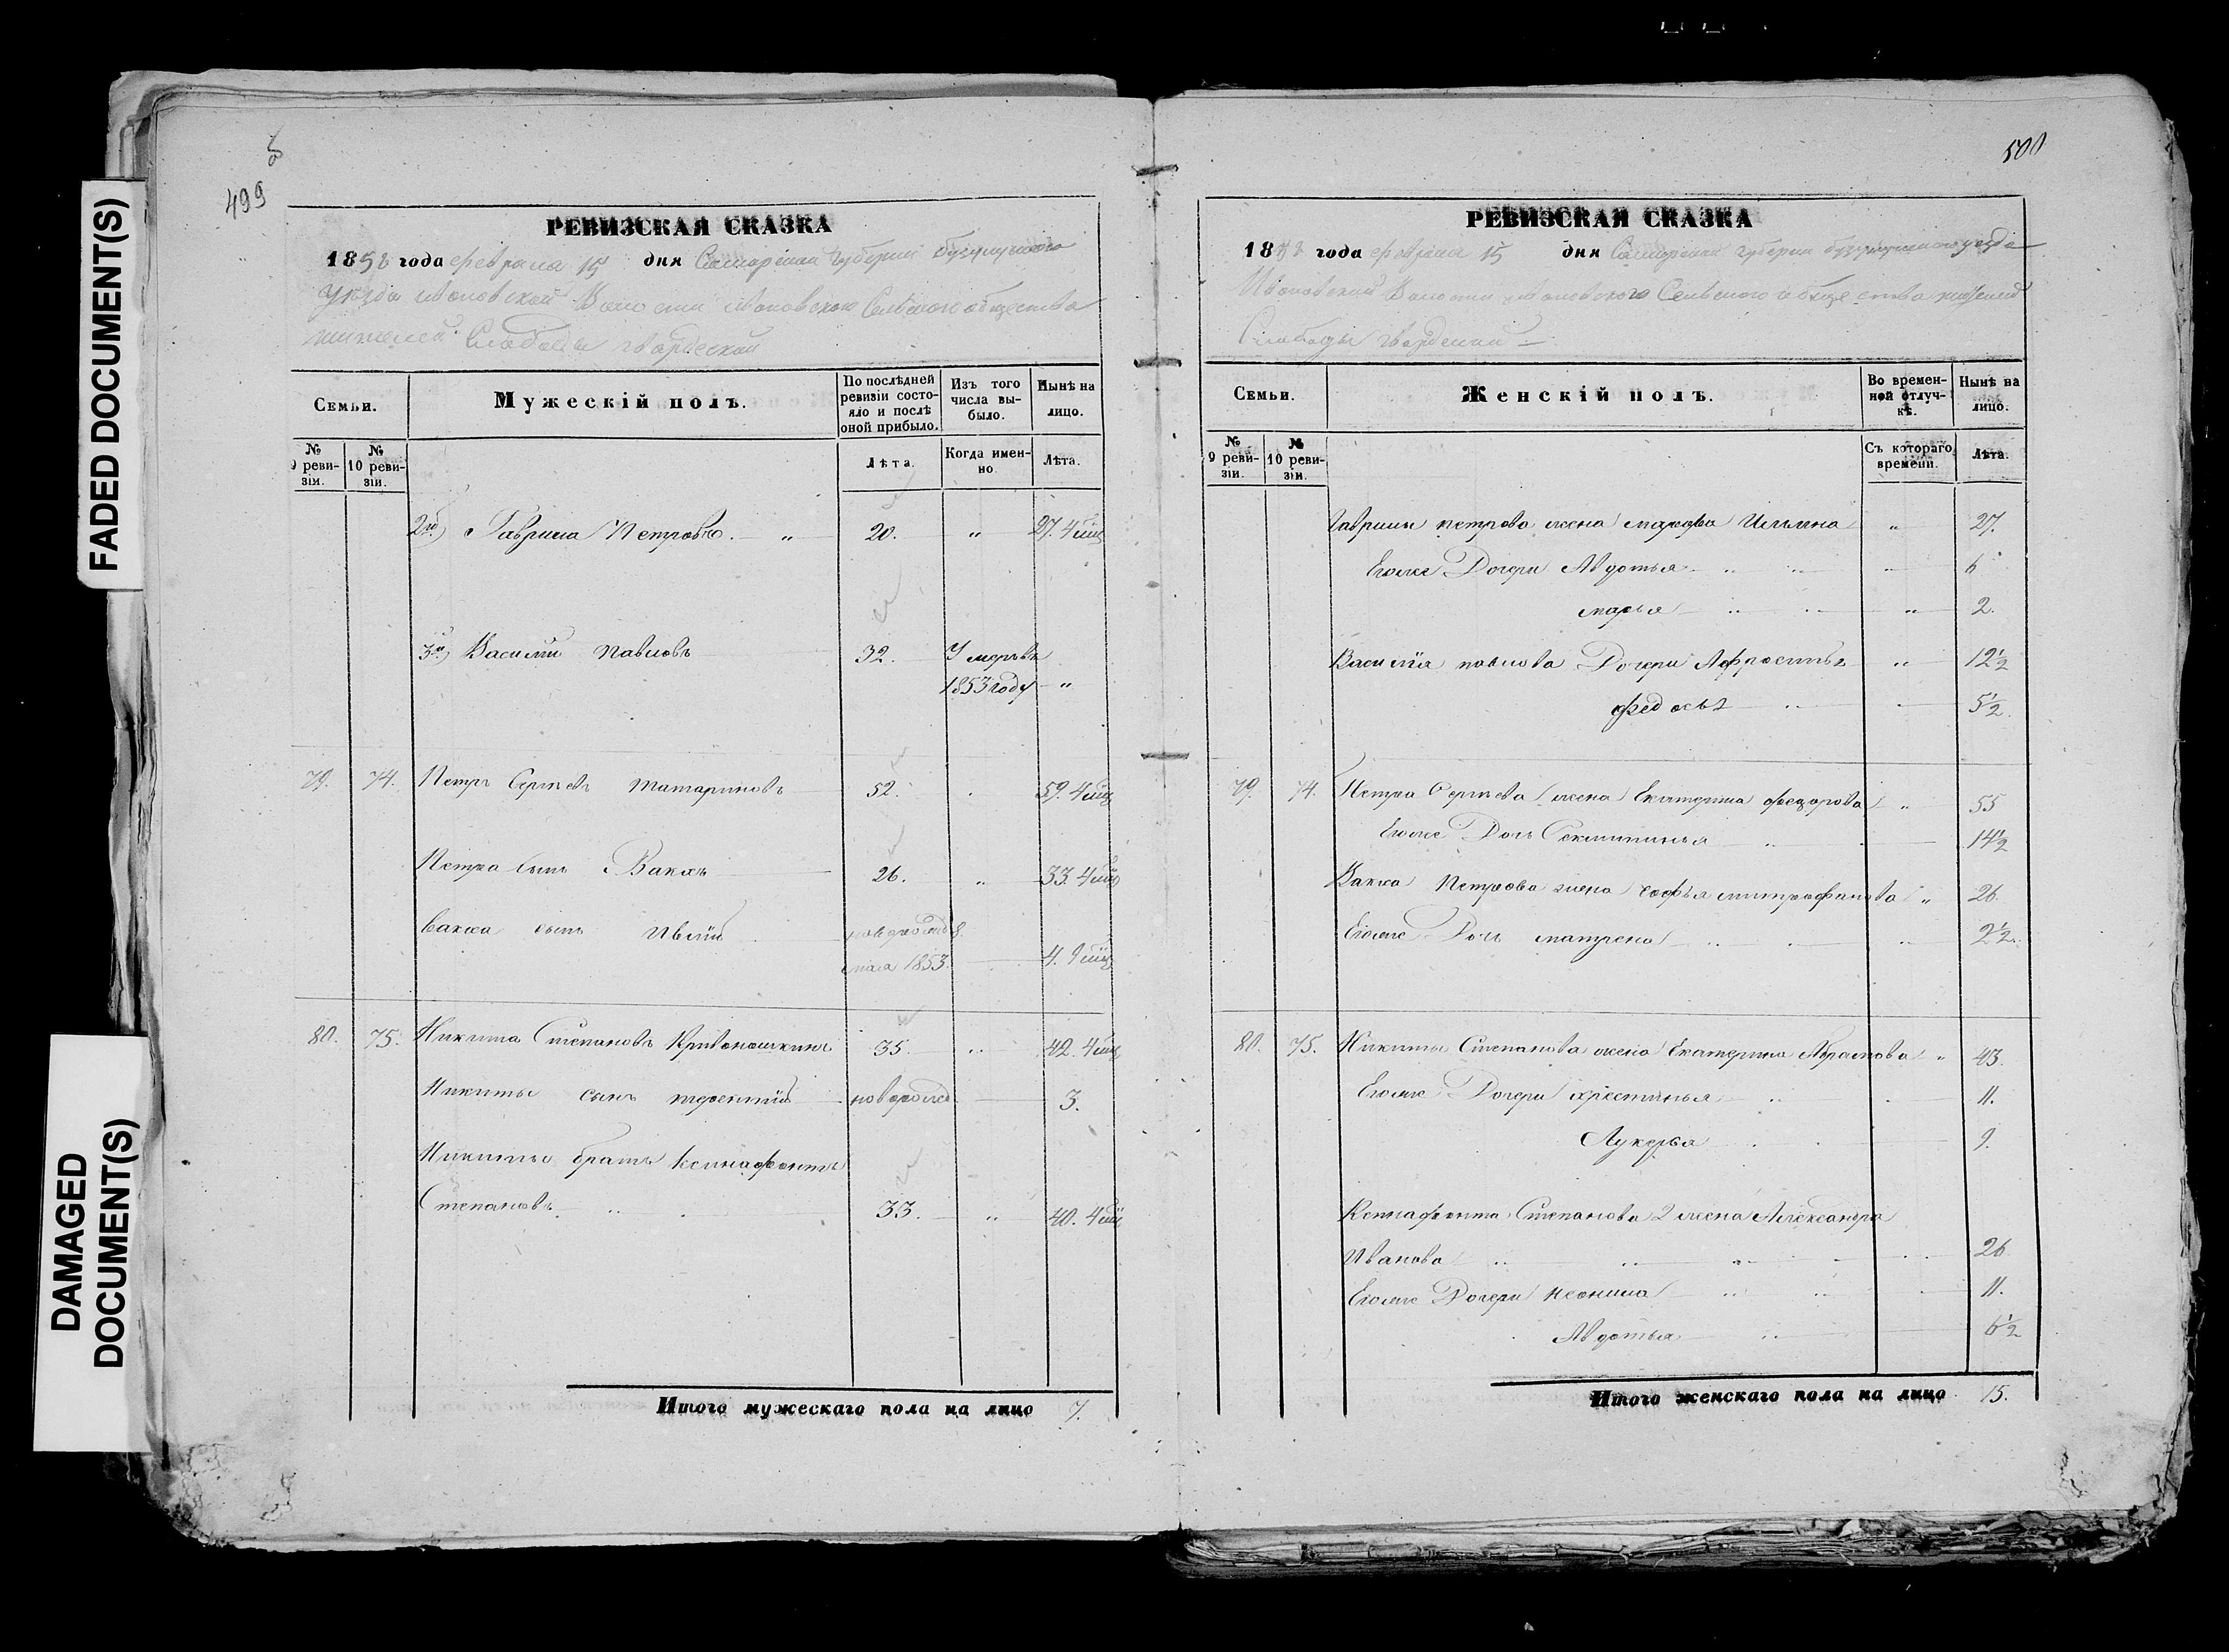 FADED DOCUMENT(S)
DAMAGED
DOCUMENT(S)
499
РЕВИЗСКАЯ СКАЗКА
1858 года февраля 15 дня Самарской губернии Бузулукского
Уезда Ивановской Волости Ивановского Сельского общества
жителей Слободы Гвардеской
Семьи.
Мужескій полъ.
По послѣдней
ревизіи состо-
яло и послѣ
оной прибыло.
Изъ того
числа вы-
было.
Нынѣ на
лицо.
№
9 реви-
зіи.
№
10 реви-
зіи.
Лѣта.
Когда имен-
но.
Лѣта.
2й) Гаврила Петровъ. " 20. " 27. 4
3й) Василий Павловъ 32. Умеръ въ
1853 году "
79. 74. Петръ Сергѣевъ Татариновъ 52. 59. 4
Петра сынъ Вакхъ 26. " 33. 4
Вакха сынъ новорожд
мая 1853. 4. 9
80. 75. Никита Степановъ Кривоношкинъ 35. " 42. 4
Никиты сынъ терентий новорожд 3.
Никиты братъ Ксинафонтъ
Степановъ. " 33. " 40. 4
Итого мужескаго пола на лицо 7.
500
РЕВИЗСКАЯ СКАЗКА
1858 года февраля 15 дня Самарской губернии Бузулукского уезда
Ивановской Волости Ивановского Сельского общества жителей
Слободы Гвардеской
Семьи.
Женскій полъ.
Во времен-
ной отлуч-
кѣ.
Нынѣ на
лицо.
№
9 реви-
зіи.
№
10 реви-
зіи.
Съ котораго
времени.
Лѣта.
Гаврилы петрова жена марфа Ильина " 27.
Егоже Дочери Авдотья " 6
марья " 2.
Василия павлова Дочери Афросинья " 12½
федосья 5½
79. 74. Петра Сергѣева жена Екатерина федорова " 55
Егоже Дочь Секлитинья 14½
Вакха Петрова жена софья митрофанова " 26
Егоже Дочь матрена 2½
80. 75. Никиты Степанова жена Екатерина Абрамова " 43.
Егоже Дочери христинья 11.
Лукерья 9.
Ксинафонта Степанова 2 жена Александра
Иванова 26
Егоже Дочери неонила 11.
Авдотья 6½
Итого женскаго пола на лицо 15.